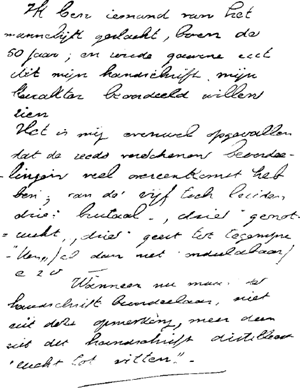 Ik ben iemand van het
mannelijk geslacht, boven de
50 jaar; en zoude gaarne uit
dit mijn handschrift mijn
karakter beoordeeld willen
zien
Het is mij evenwel opgevallen
dat de reeds verschenen beoordee-
-lingen veel overeenkomst heb
ben; van de vijf toch luiden
drie: brutaal -, drie genot-
= zucht, drie geest tot tegenspre
ken, al dan niet
e z v —
Wanneer nu maar de
handschrift beoordeelaar, niet
uit deze opmerking, maar dan
uit dit handschrift distilleer
"zucht tot vitten". -